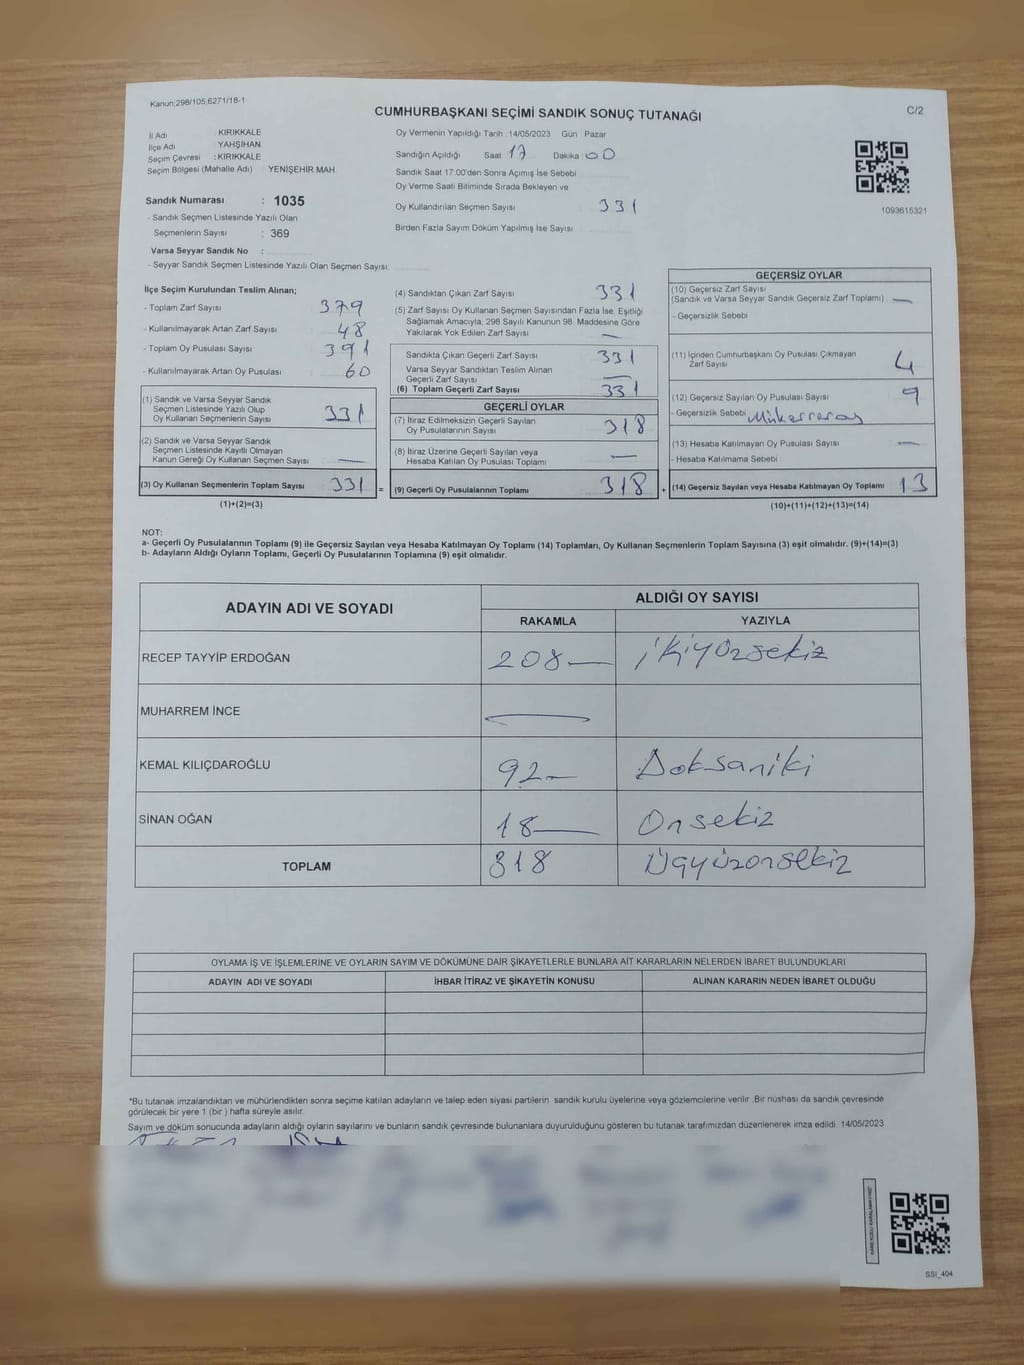 Kanun;298/105;6271/18-1
C/2
CUMHURBAŞKANI SEÇİMİ SANDIK SONUÇ TUTANAĞI
İl Adı : KIRIKKALE
İlçe Adı : YAHŞİHAN
Seçim Çevresi : KIRIKKALE
Seçim Bölgesi (Mahalle Adı) YENİŞEHİR MAH.
Sandık Numarası : 1035
- Sandık Seçmen Listesinde Yazılı Olan
Seçmenlerin Sayısı : 369
Varsa Seyyar Sandık No :
- Seyyar Sandık Seçmen Listesinde Yazılı Olan Seçmen Sayısı:
Oy Vermenin Yapıldığı Tarih :14/05/2023 Gün Pazar
Sandığın Açıldığı Saat 17 Dakika 00
Sandık Saat 17.00'den Sonra Açımış İse Sebebi
Oy Verme Saati Bitiminde Sırada Bekleyen ve
Oy Kullandırılan Seçmen Sayısı 331
Birden Fazla Sayım Döküm Yapılmış İse Sayısı
1093615321
İlçe Seçim Kurulundan Teslim Alınan;
- Toplam Zarf Sayısı 379
- Kullanılmayarak Artan Zarf Sayısı 48
- Toplam Oy Pusulası Sayısı 391
- Kullanılmayarak Artan Oy Pusulası 60
(1) Sandık ve Varsa Seyyar Sandık
Seçmen Listesinde Yazılı Olup
Oy Kullanan Seçmenlerin Sayısı 331
(2) Sandık ve Varsa Seyyar Sandık
Seçmen Listesinde Kayıtlı Olmayan
Kanun Gereği Oy Kullanan Seçmen Sayısı —
(3) Oy Kullanan Seçmenlerin Toplam Sayısı 331 =
(1)+(2)=(3)
(4) Sandıktan Çıkan Zarf Sayısı 331
(5) Zarf Sayısı Oy Kullanan Seçmen Sayısından Fazla İse, Eşitliği
Sağlamak Amacıyla, 298 Sayılı Kanunun 98. Maddesine Göre
Yakılarak Yok Edilen Zarf Sayısı —
Sandıkta Çıkan Geçerli Zarf Sayısı 331
Varsa Seyyar Sandıktan Teslim Alınan
Geçerli Zarf Sayısı —
(6) Toplam Geçerli Zarf Sayısı 331
GEÇERLİ OYLAR
(7) İtiraz Edilmeksizin Geçerli Sayılan
Oy Pusulalarının Sayısı 318
(8) İtiraz Üzerine Geçerli Sayılan veya
Hesaba Katılan Oy Pusulası Toplamı —
(9) Geçerli Oy Pusulalarının Toplamı 318 +
GEÇERSİZ OYLAR
(10) Geçersiz Zarf Sayısı
(Sandık ve Varsa Seyyar Sandık Geçersiz Zarf Toplamı) —
- Geçersizlik Sebebi
(11) İçinden Cumhurbaşkanı Oy Pusulası Çıkmayan
Zarf Sayısı 4
(12) Geçersiz Sayılan Oy Pusulası Sayısı 9
- Geçersizlik Sebebi
(13) Hesaba Katılmayan Oy Pusulası Sayısı —
- Hesaba Katılmama Sebebi
(14) Geçersiz Sayılan veya Hesaba Katılmayan Oy Toplamı 13
(10)+(11)+(12)+(13)=(14)
NOT:
a- Geçerli Oy Pusulalarının Toplamı (9) ile Geçersiz Sayılan veya Hesaba Katılmayan Oy Toplamı (14) Toplamları, Oy Kullanan Seçmenlerin Toplam Sayısına (3) eşit olmalıdır. (9)+(14)=(3)
b- Adayların Aldığı Oyların Toplamı, Geçerli Oy Pusulalarının Toplamına (9) eşit olmalıdır.
ADAYIN ADI VE SOYADI ALDIĞI OY SAYISI
RAKAMLA YAZIYLA
RECEP TAYYİP ERDOĞAN 208 — ikiyüzsekiz
MUHARREM İNCE —
KEMAL KILIÇDAROĞLU 92 — Doksaniki
SİNAN OĞAN 18 — Onsekiz
TOPLAM 318 Üçyüzonsekiz
OYLAMA İŞ VE İŞLEMLERİNE VE OYLARIN SAYIM VE DÖKÜMÜNE DAİR ŞİKAYETLERLE BUNLARA AİT KARARLARIN NELERDEN İBARET BULUNDUKLARI
ADAYIN ADI VE SOYADI İHBAR İTİRAZ VE ŞİKAYETİN KONUSU ALINAN KARARIN NEDEN İBARET OLDUĞU
*Bu tutanak imzalandıktan ve mühürlendikten sonra seçime katılan adayların ve talep eden siyasi partilerin sandık kurulu üyelerine veya gözlemcilerine verilir .Bir nüshası da sandık çevresinde
görülecek bir yere 1 (bir ) hafta süreyle asılır.
Sayım ve döküm sonucunda adayların aldığı oyların sayılarını ve bunların sandık çevresinde bulunanlara duyurulduğunu gösteren bu tutanak tarafımızdan düzenlenerek imza edildi. 14/05/2023
SSI_404